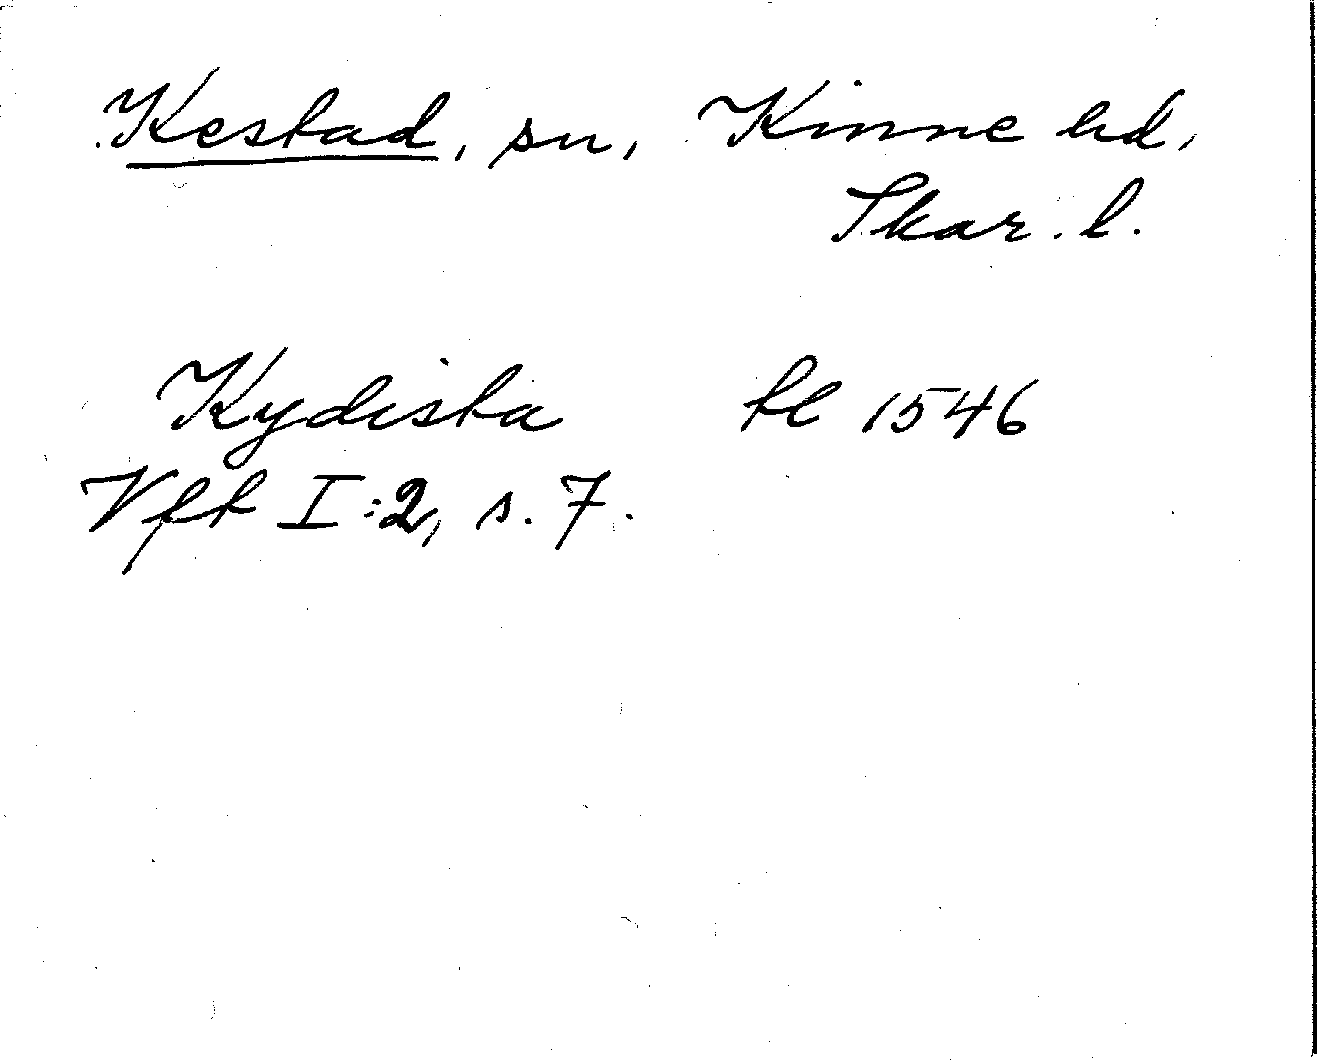 Kestad, sn, Kinne hd,
Skar. l.
Kydista tl 1546
Vft I:2, s. 7.